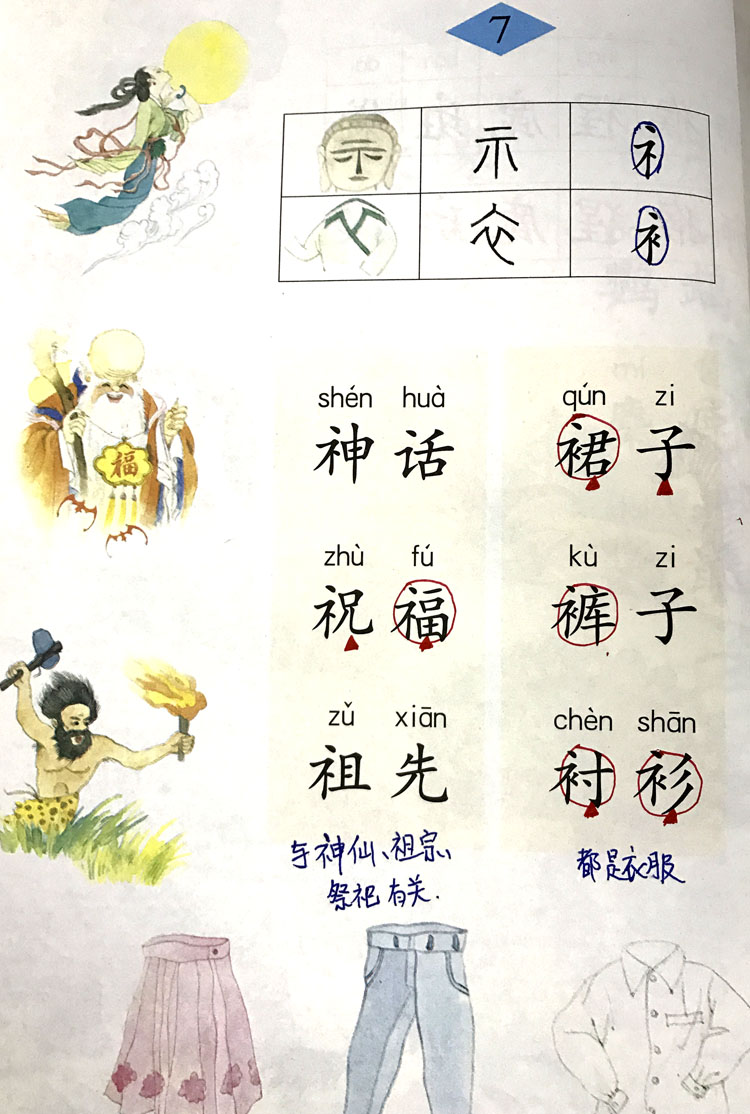 7
示 礻
衣 衤
福
shén huà qún zi
神话 裙子
zhù fú kù zi
祝福 裤子
zǔ xiān chèn shān
祖先 衬衫
与神仙、祖宗、 都是衣服
祭祀有关.